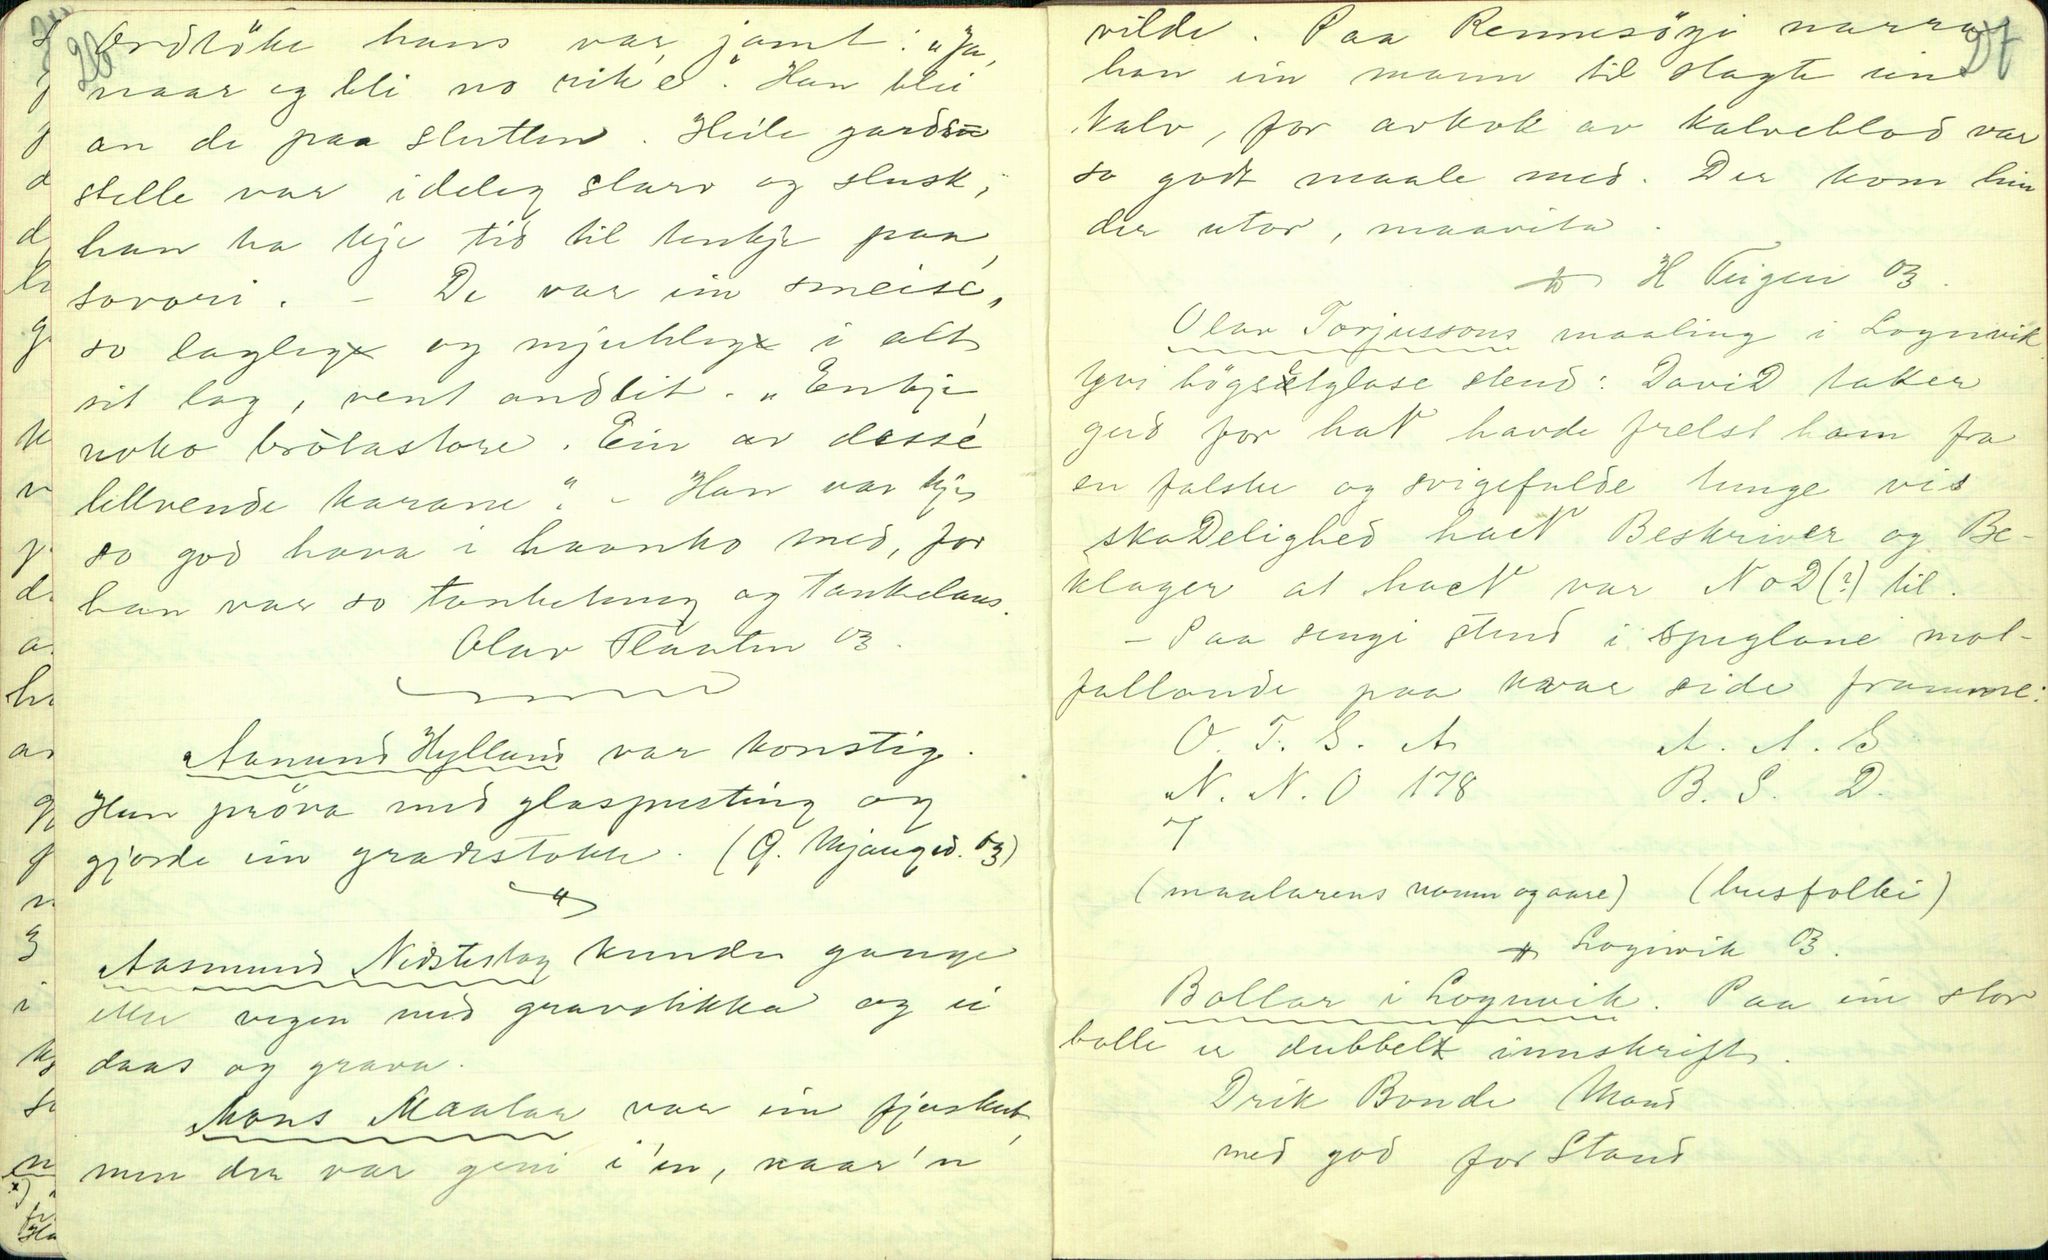 26
Ordtöke hans var jamt: "Ja,
naar eg bli no rik'e". Han blei
an de paa slutten. Heile gards-
stelle var ideleg slarv og slusk;
han ha kje tid til tenkje paa
sovori. – De var ein smeise,
so lagleg og mjukleg i alt
sit lag, vent andlit. "Enkje
noko brötastore. Ein av dessé
lettvende karane". – Han var kje
so god hava i haanko med, for
han var so tanketung og tankelaus.
Olav Flaatin 03.
Aanund Hylland var konstig.
Han pröva med glaspusting og
gjorde ein gradestokk. (G. Kjaaged. 03)
Aasmund Nedsteslog kunde gange
etter vegen med gravstikka og ei
daas og grava.
Mons Maalar var ein fjuskut,
men der var geni i'en, naar'n
27
vilde. Paa Rennesögi narra
han ein mann til slagte ein
kalv, for avkok av kalveblod var
so godt maale med. Der kom hin
der utor, maavita.
H Teigen 03.
Olav Torjussons maaling i Lognvik
Yvi högsetglase stend: DaviD taker
gud for haN havde frelst ham fra
en falske og svigefulde tunge vis
skaDelighed haN Beskriver og Be-
klager at haN var NoD(?) til.
– Paa sengi stend i speglane mot-
fallande paa kvar side framme:
O. T. S. A    A. A. S
N. N. O 178    B. S. D.
7
(maalarens namn og aare)    (husfolki)
Lognvik 03.
Bollar i Lognvik. Paa ein stor
bolle er dubbelt innskrift.
Drik Bonde Mand
med god for Stand